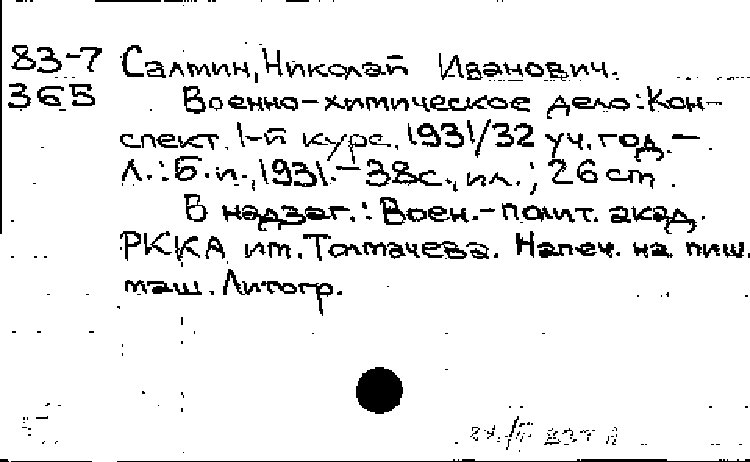 83-7 Салтин, Николай Иванович.
365 Военно-химическое дело: Кон-
спект. 1-й курс. 1931/32 уч. год. –
Л.: Б. и., 1931. – 38с., ил.; 26 cm.
В надзаг.: Воен.-полит. акад.
РККА им. Толмачева. Напеч. на пиш.
маш. Литогр.